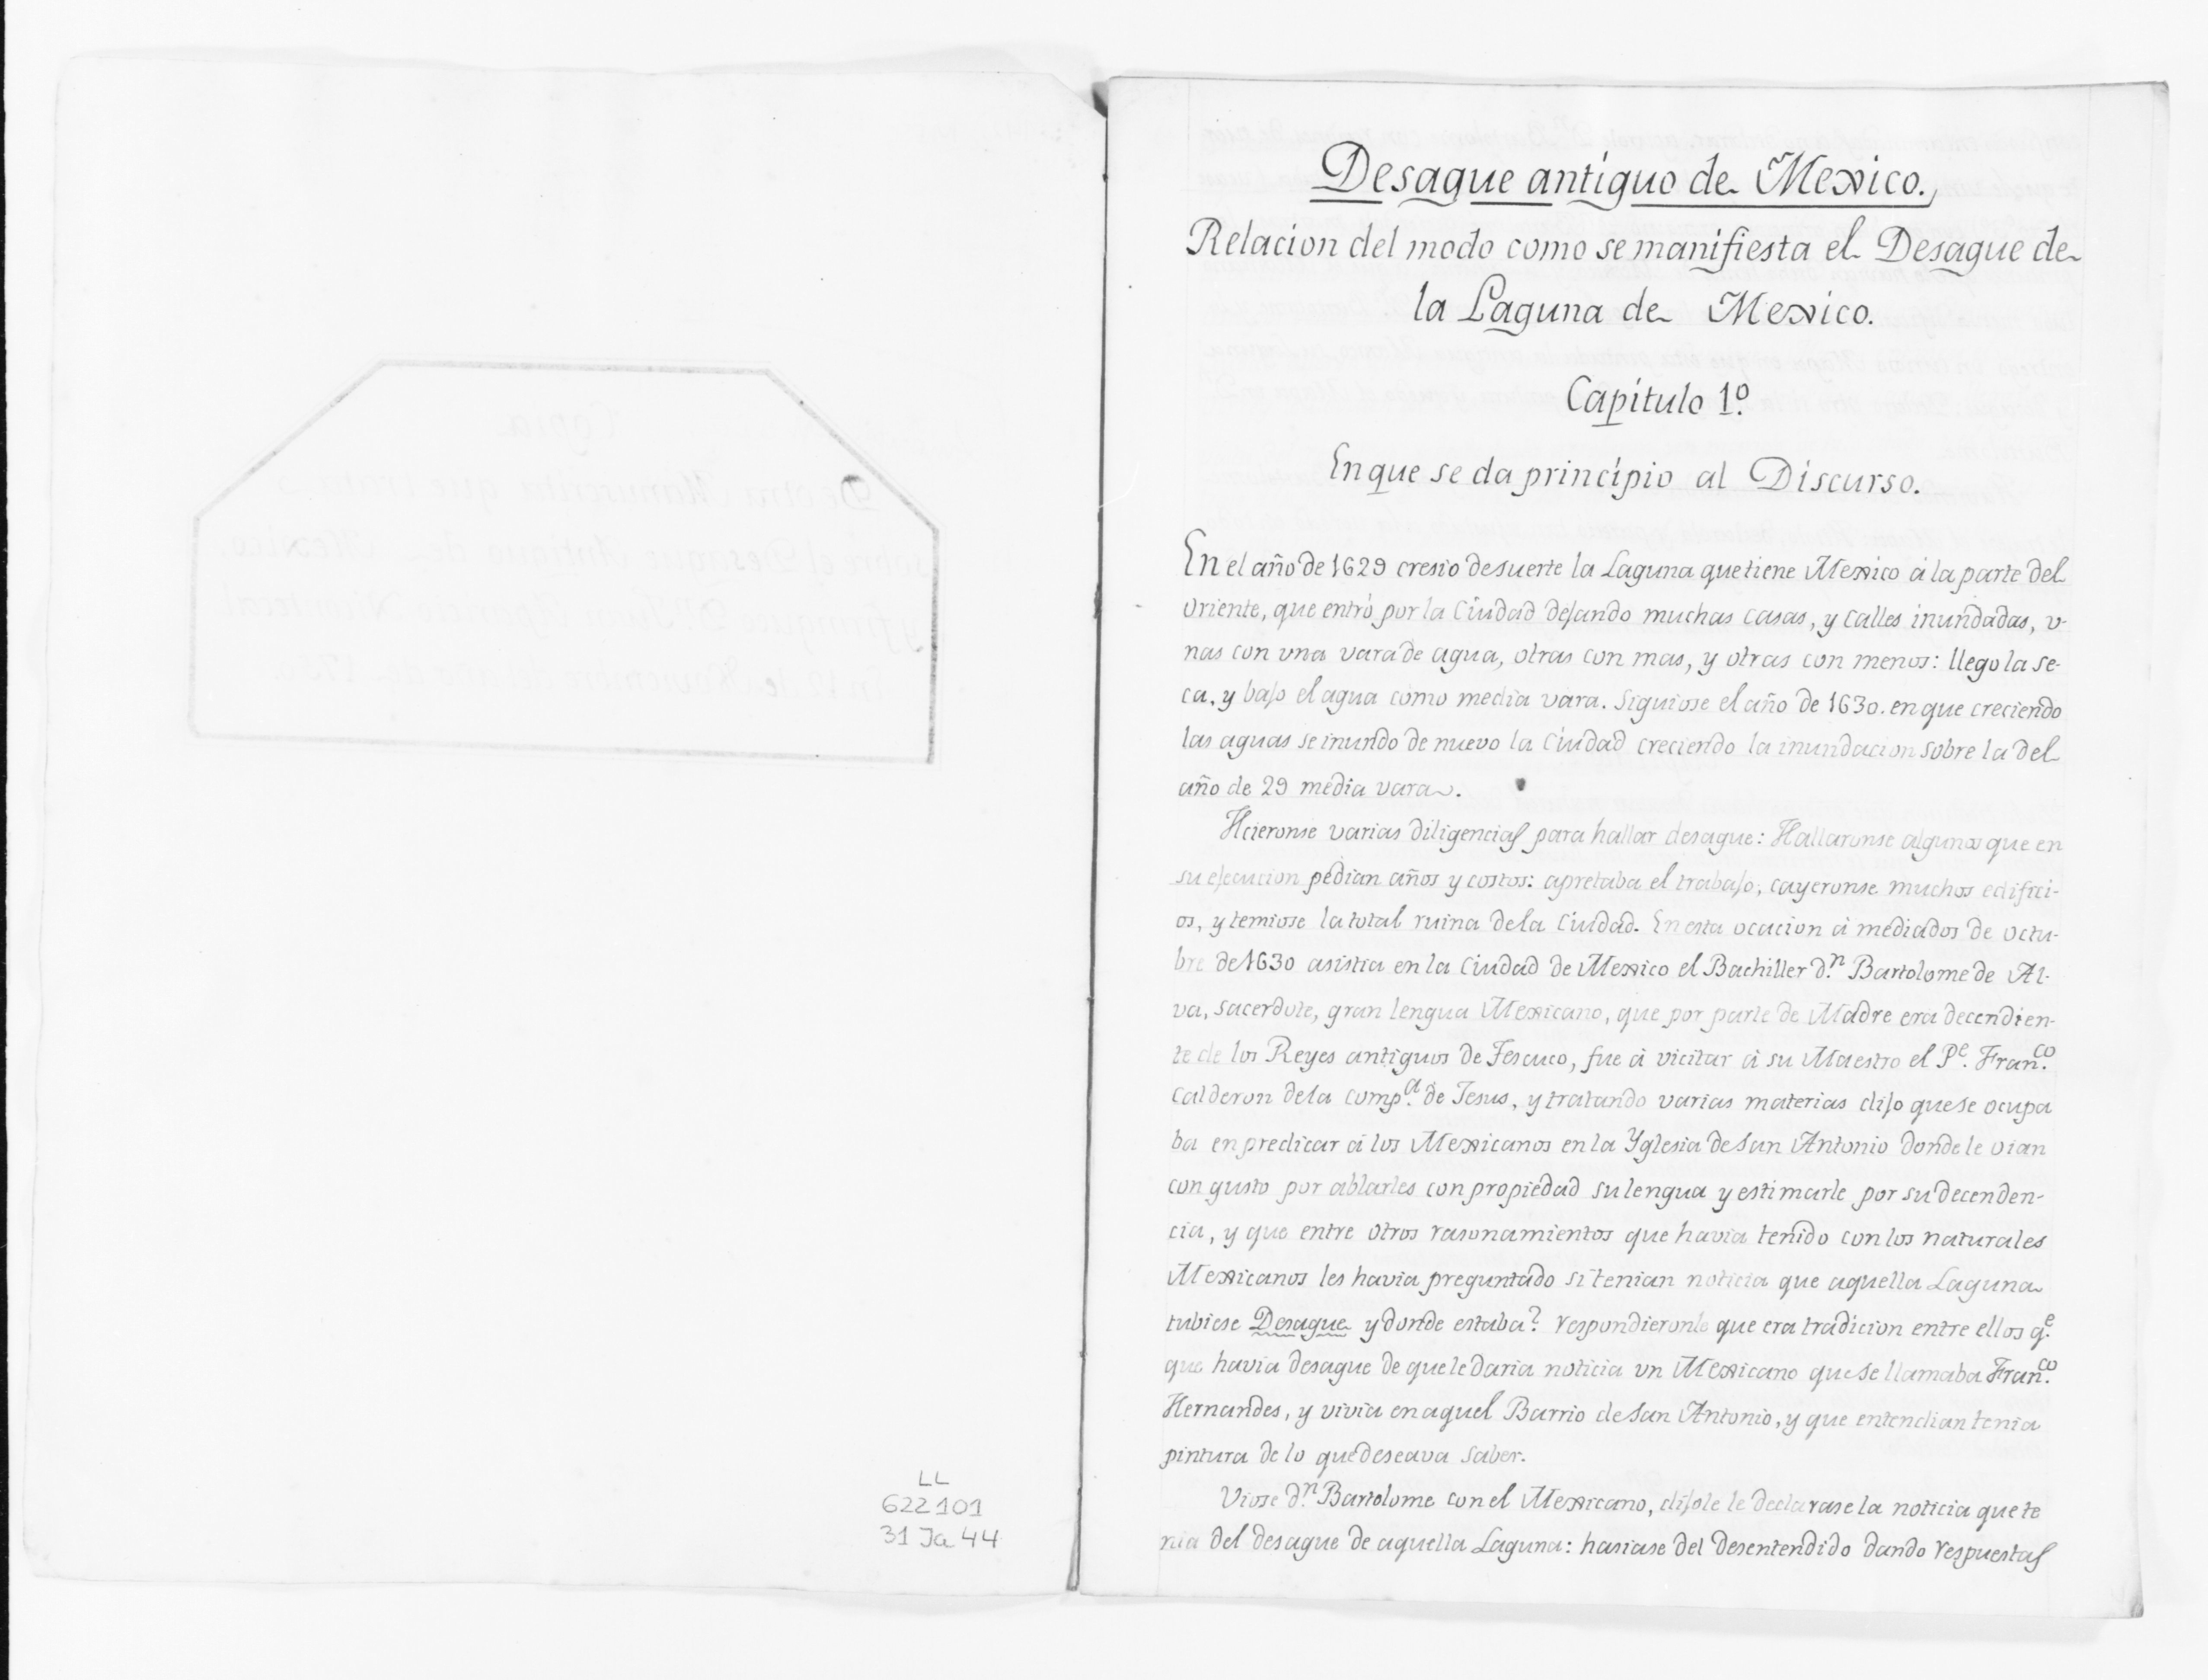 Desague antiguo de Mexico.
Relacion del modo como se manifiesta el Desague de
la Laguna de Mexico.
Capitulo 1º.
En que se da principio al Discurso.
En el año de 1629 cresio desuerte la Laguna que tiene Mexico á la parte del
oriente, que entró por la Ciudad dejando muchas casas, y calles inundadas, v-
nas con vna vara de agua, otras con mas, y otras con menos: llego la se-
ca, y bajo el agua como media vara. Siguiose el año de 1630. en que creciendo
las aguas se inundo de nuevo la Ciudad creciendo la inundacion sobre la del
año de 29 media vara.
Hcieronse varias diligencias para hallar desague: Hallaronse algunos que en
su ejecucion pedian años y costos: apretaba el trabajo, cayeronse muchos edifici-
os, y temiose la total ruina dela Ciudad. En esta ocacion á mediados de octu-
bre de 1630 asistia en la Ciudad de Mexico el Bachiller d.n Bartolome de Al-
va, sacerdote, gran lengua Mexicano, que por parte de Madre era decendien-
te de los Reyes antiguos de Tescuco, fue á vicitar á su Maestro el P.e Fran.co
Calderon dela comp.a de Jesus, y tratando varias materias dijo que se ocupa
ba en predicar á los Mexicanos en la Yglesia de San Antonio donde le oian
con gusto por ablarles con propiedad su lengua y estimarle por su decenden-
cia, y que entre otros rasonamientos que havia tenido con los naturales
Mexicanos les havia preguntado si tenian noticia que aquella Laguna
tubiese Desague y donde estaba? respondieronle que era tradicion entre ellos q.e
que havia desague de que le daria noticia vn Mexicano que se llamaba Fran.co
Hernandes, y vivia en aquel Barrio de San Antonio, y que entendian tenia
pintura de lo que deseava saber.
Viose d.n Bartolome con el Mexicano, dijole le declarase la noticia que te
nia del desague de aquella Laguna: hasiase del desentendido dando respuestas
LL
622101
31 Ja 44